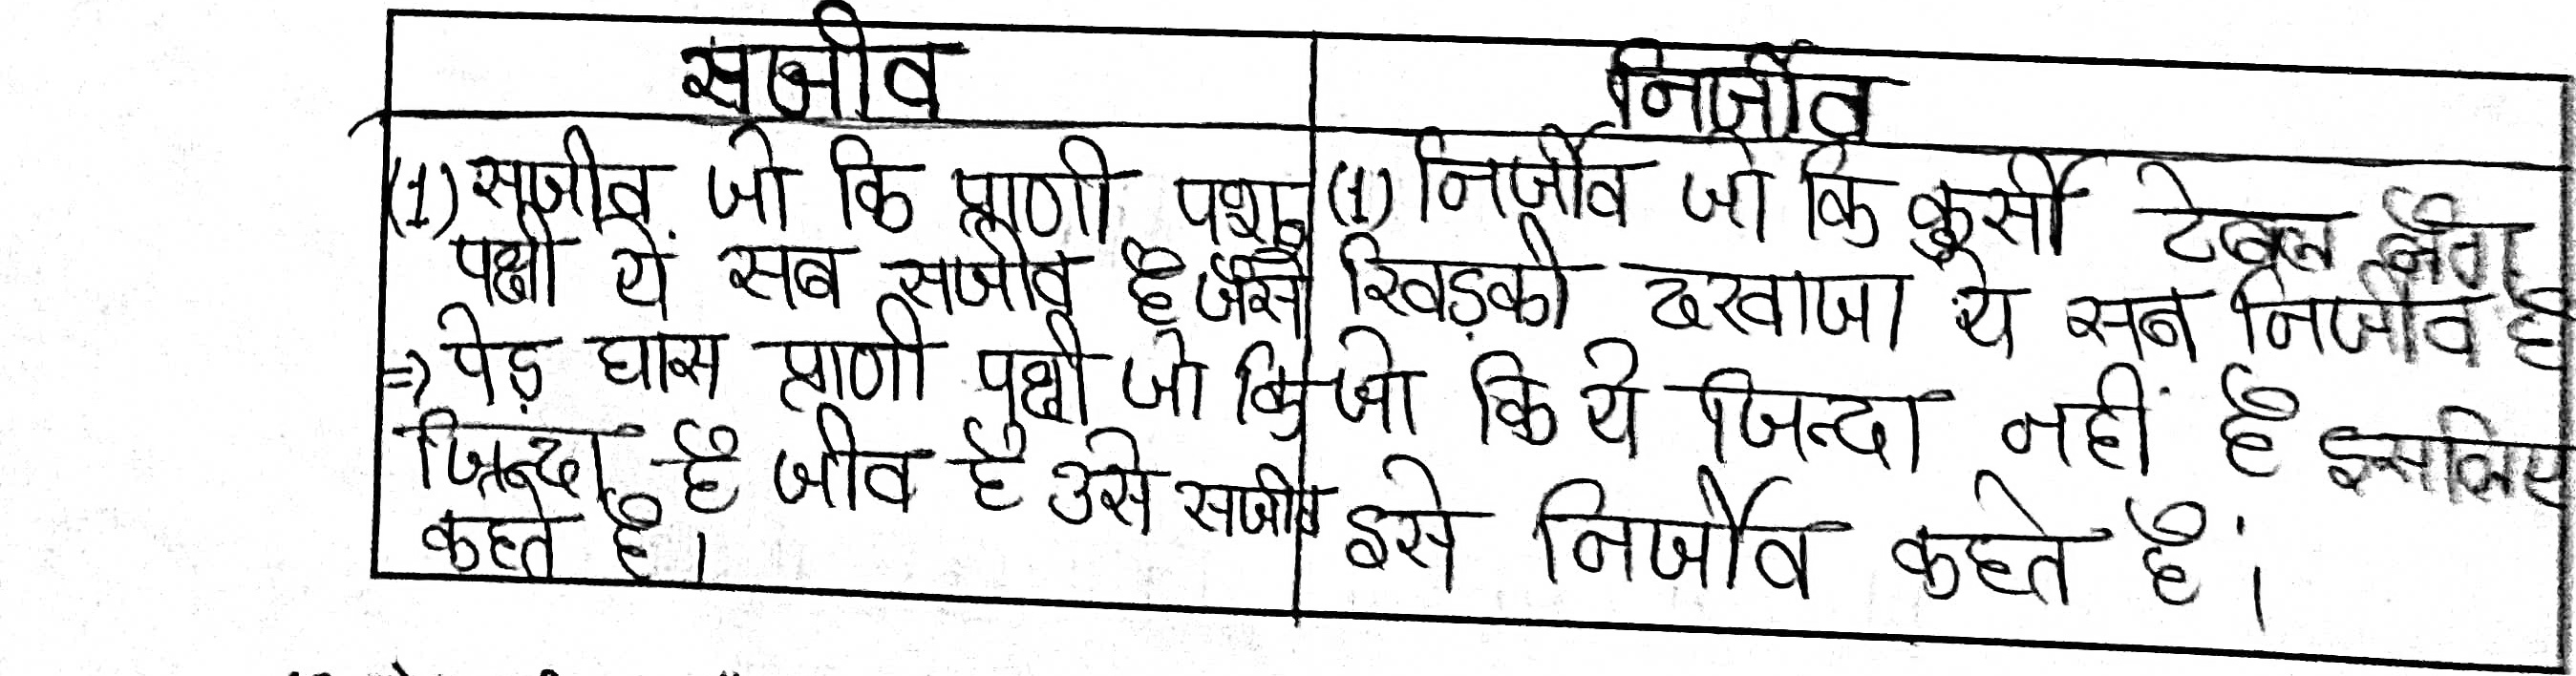 सजीव
निर्जीव
(1) सजीव जो कि प्राणी पशु
पक्षी ये सब सजीव है जैसे
=> पेड़ घास प्राणी पक्षी जो कि
जिन्दा है जीव है उसे सजीव
कहते है।
(1) निर्जीव जो कि कुर्सी टेबल
खिड़की दरवाजा ये सब निर्जीव है
जो कि ये जिन्दा नहीं है इसलिए
इसे निर्जीव कहते है।